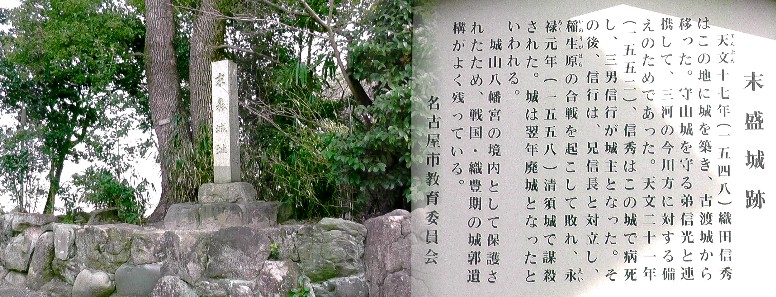 末森城址
末盛城跡
天文十七年(一五四八)織田信秀
はこの地に城を築き、古渡城から
移った。守山城を守る弟信光と連
携して、三河の今川方に対する備
えのためであった。天文二十一年
(一五五二)、信秀はこの城で病死
し、三男信行が城主となった。そ
の後、信行は、兄信長と対立し、
稲生原の合戦を起こして敗れ、永
禄元年(一五五八)清須城で謀殺
された。城は翌年廃城となったと
いわれる。
城山八幡宮の境内として保護さ
れたため、戦国・織豊期の城郭遺
構がよく残っている。
名古屋市教育委員会